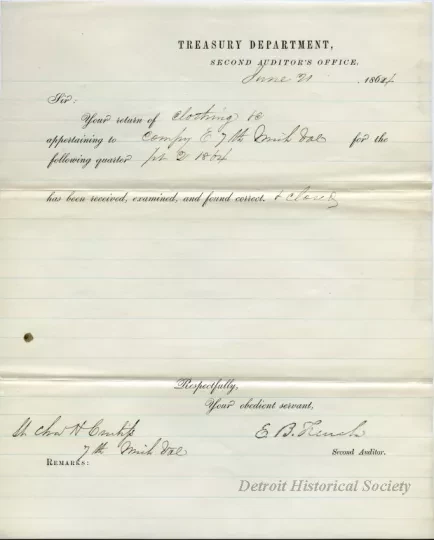 TREASURY DEPARTMENT,
SECOND AUDITOR'S OFFICE.
June 21 1864
Sir:
Your return of clothing &c
appertaining to Compy E 7th Mich Vols for the
following quarter pt 2 1864
has been received, examined, and found correct. & closed
Respectfully,
Your obedient servant,
Lt Chas H
7th Mich Vols
E B French
Second Auditor.
REMARKS:
Detroit Historical Society